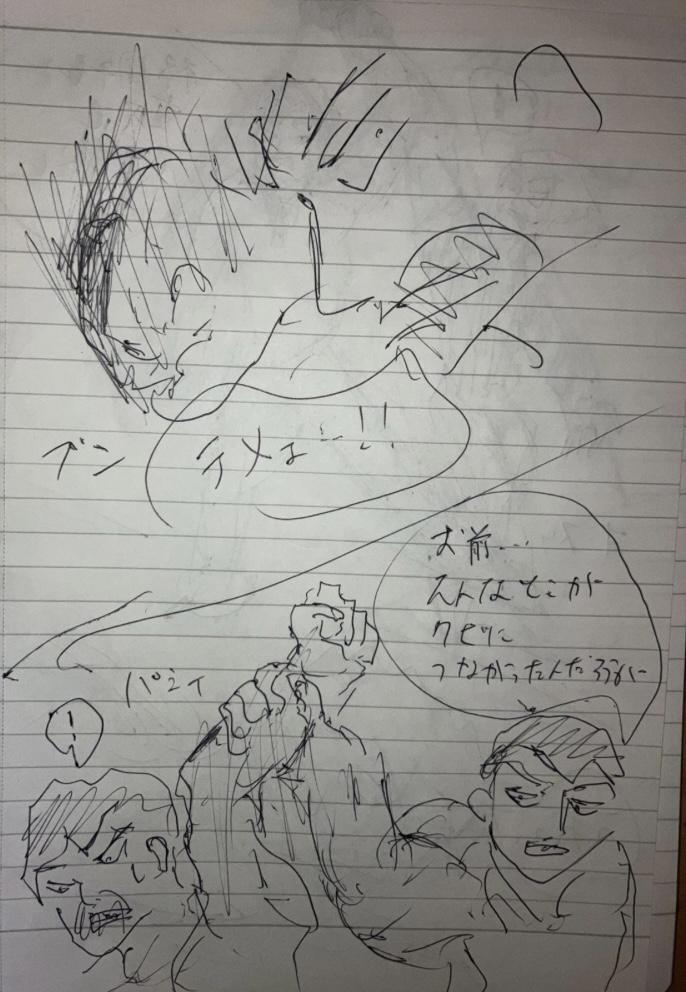 ブン
テメェー!!
お前…
そんなとこが
クセに
つながったんだろうに
パシィ
!